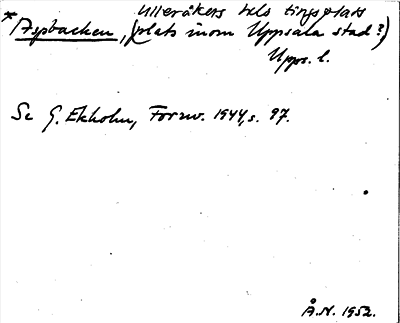 Ulleråkers hds tingsplats
*Aspbacken, (plats inom Uppsala stad?)
Upps. l.
Se G. Ekholm, Fornv. 1944, s. 97.
Å.N. 1952.